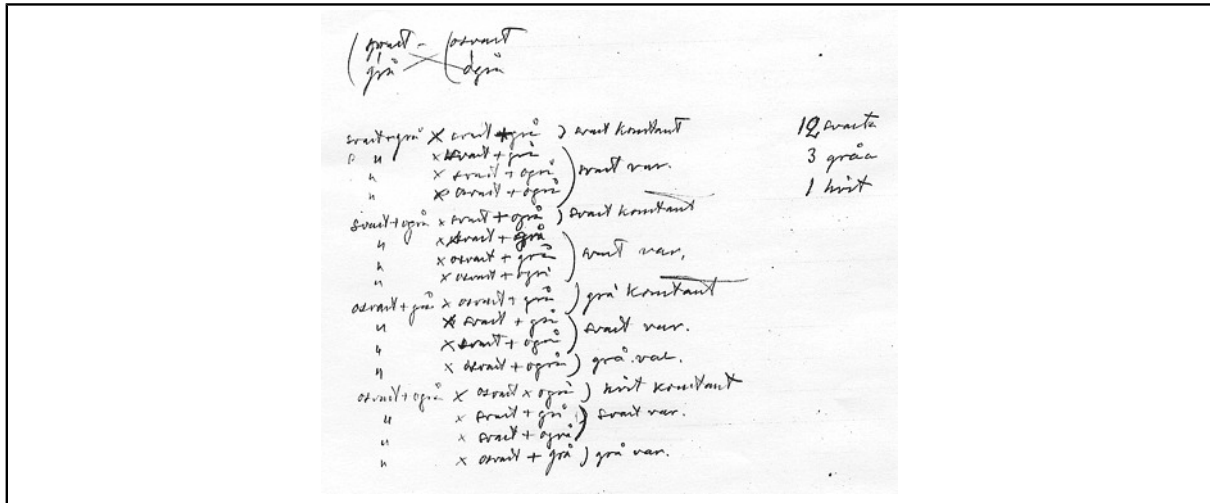 ( svart – ( osvart
( grå ( ogrå
svart+grå × svart+grå ) svart konstant 12 svarta
" " × svart + grå 3 gråa
" × svart + ogrå ) svart var. 1 hvit
" × osvart + ogrå
svart+ogrå × svart + ogrå ) svart konstant
" × svart + grå
" × osvart + grå ) svart var.
" × osvart + ogrå
osvart+grå × osvart + grå ) grå konstant
" × svart + grå
" × svart + ogrå ) svart var.
" × osvart + ogrå ) grå var.
osvart+ogrå × osvart × ogrå ) hvit konstant
" × svart + grå ) svart var.
" × svart + ogrå
" × osvart + grå ) grå var.